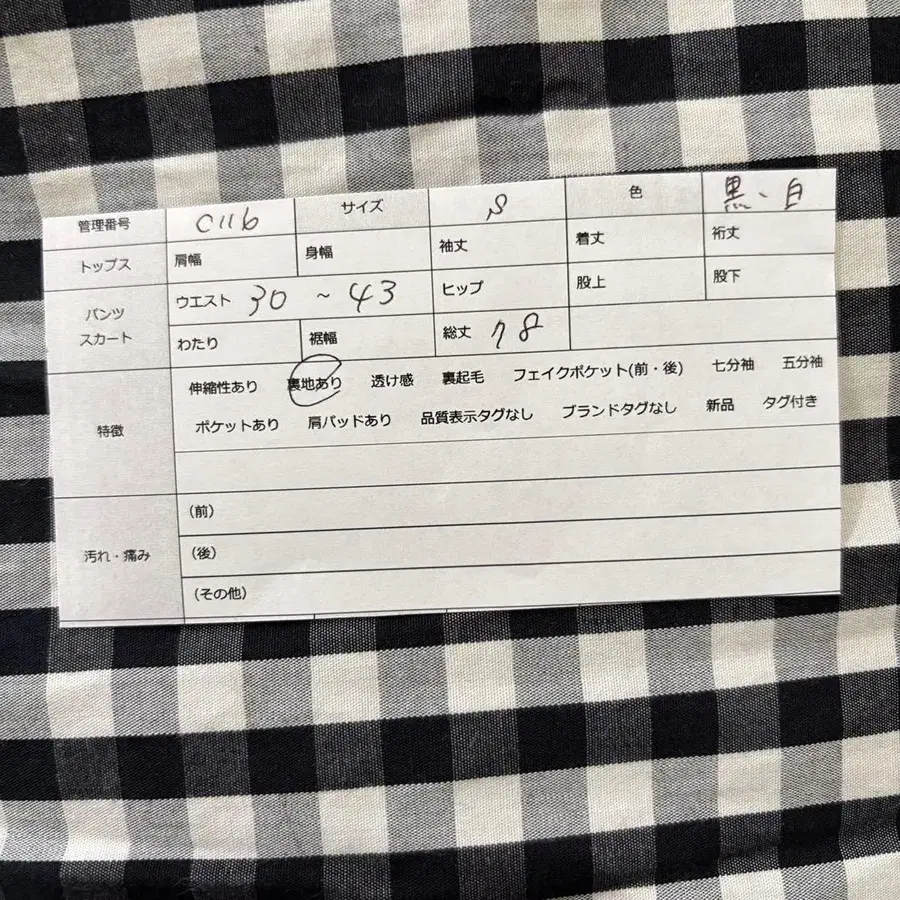 管理番号 C116 サイズ S 色 黒、白
トップス 肩幅 身幅 袖丈 着丈 裄丈
パンツ スカート ウエスト 30 ~ 43 ヒップ 股上 股下
わたり 裾幅 総丈 78
特徴 伸縮性あり 裏地あり 透け感 裏起毛 フェイクポケット(前・後) 七分袖 五分袖
ポケットあり 肩パッドあり 品質表示タグなし ブランドタグなし 新品 タグ付き
汚れ・痛み (前)
(後)
(その他)